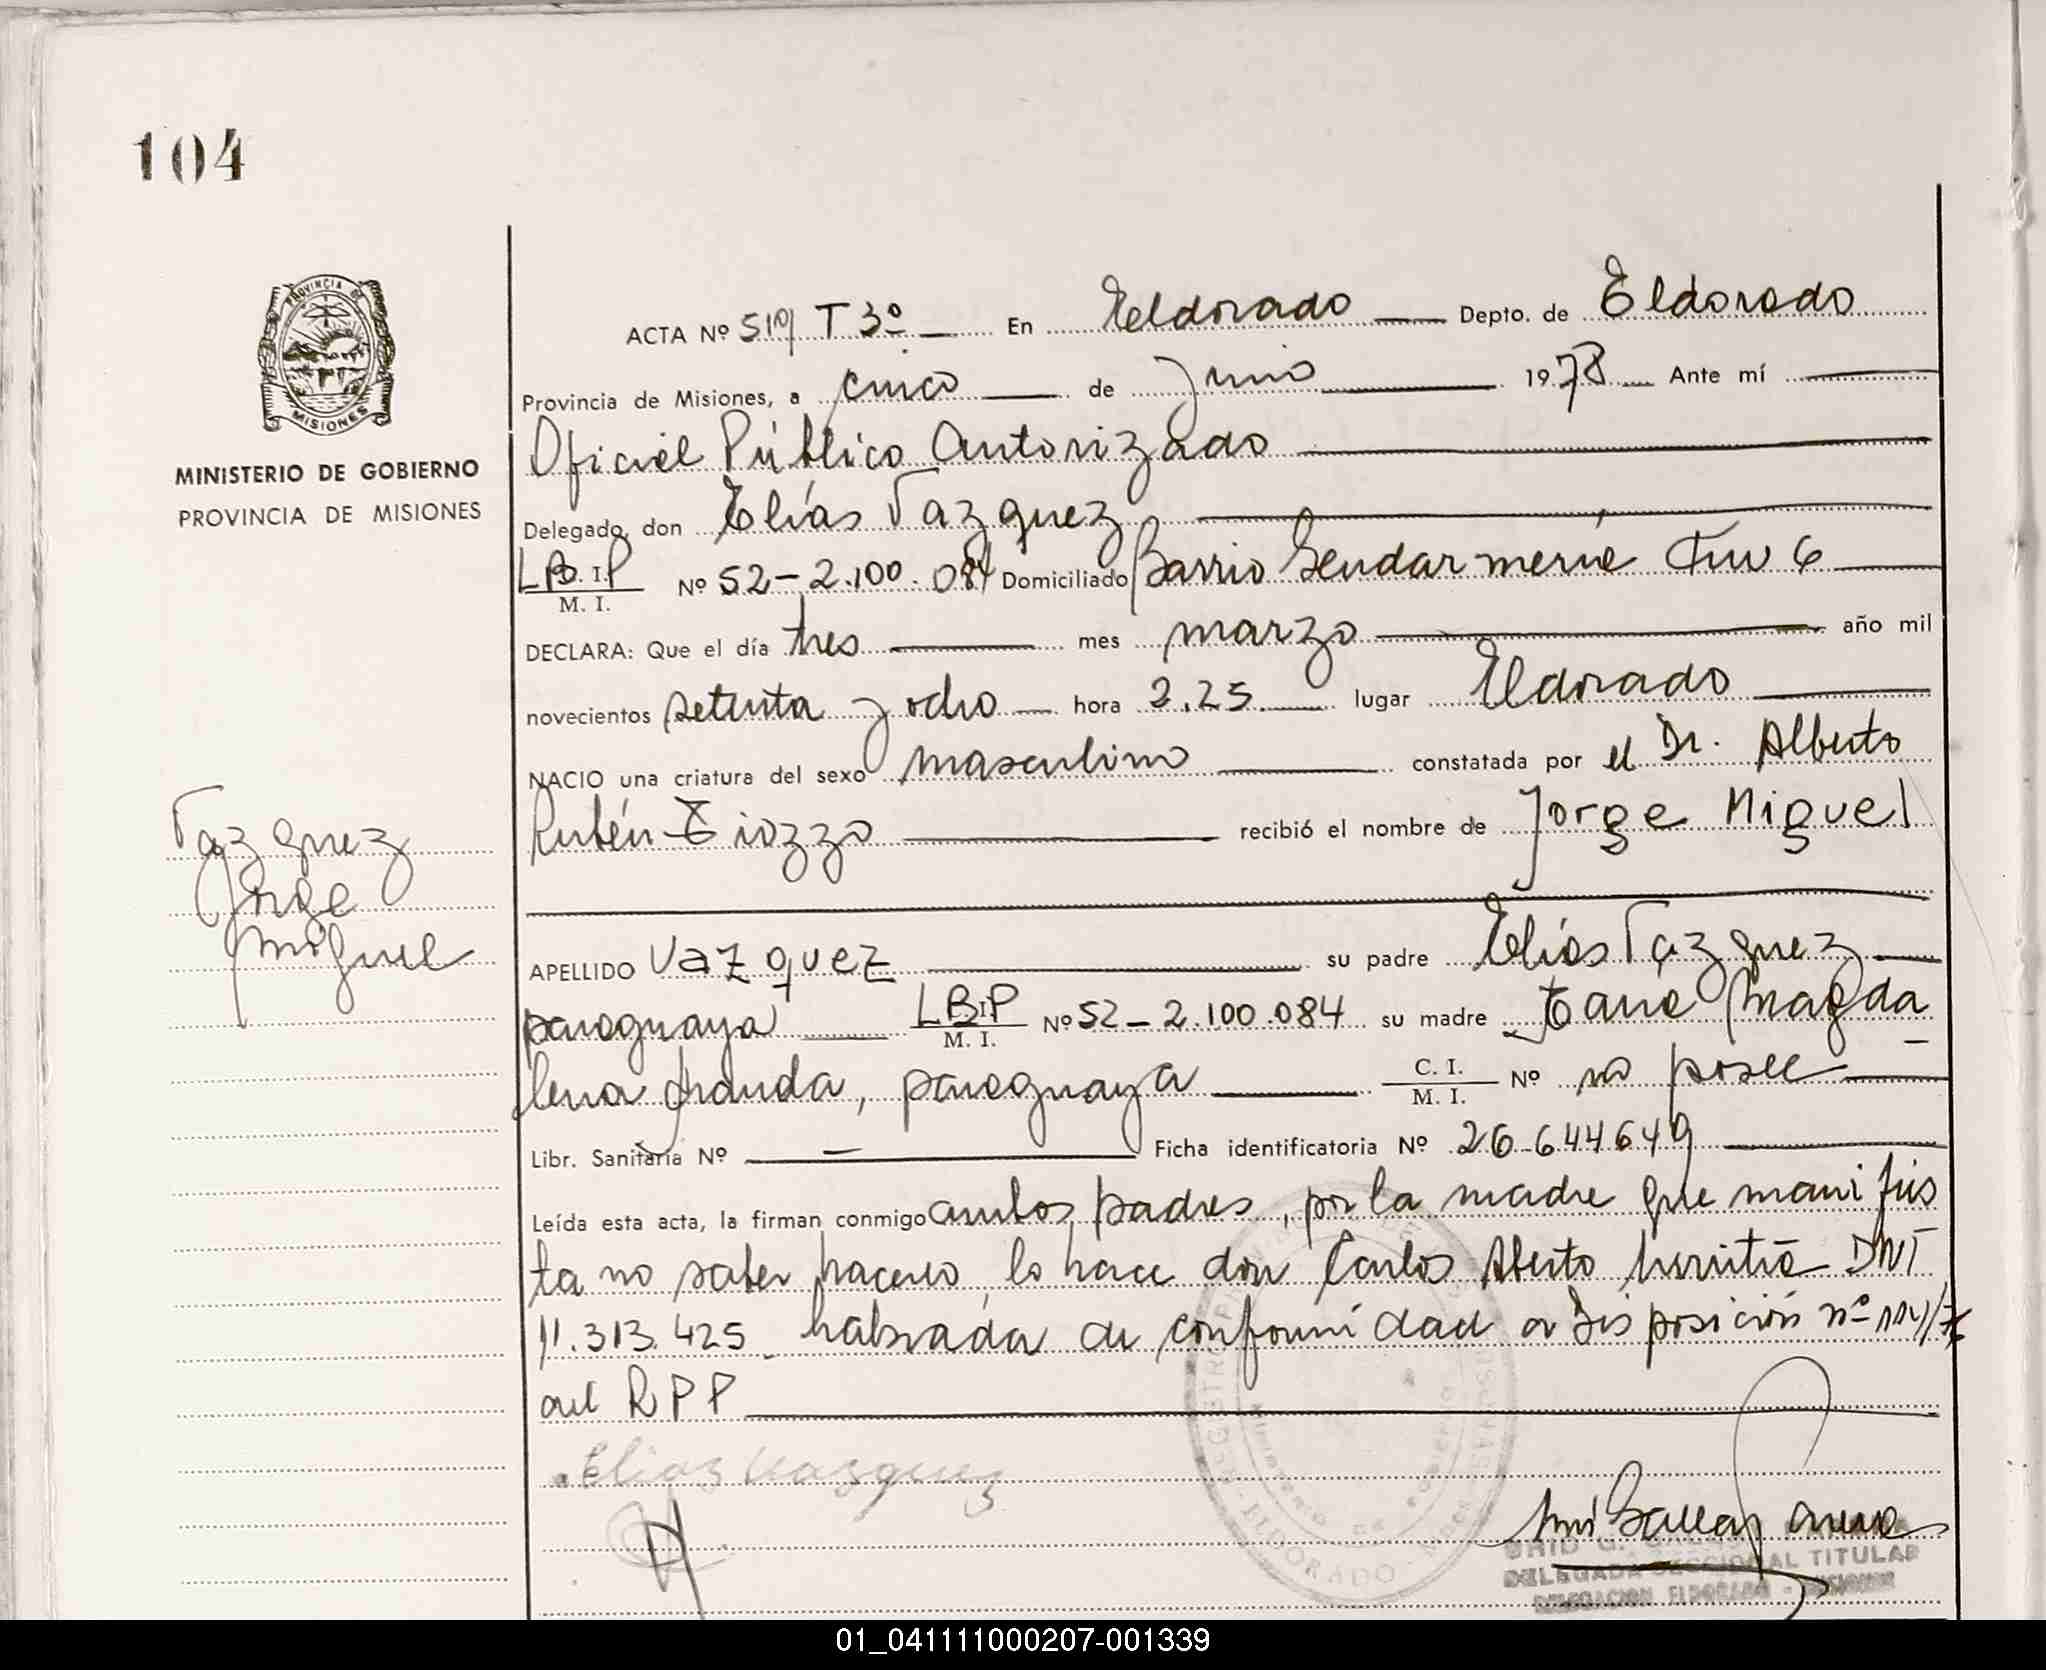 104
PROVINCIA DE
MISIONES
MINISTERIO DE GOBIERNO
PROVINCIA DE MISIONES
ACTA Nº 519 T 3º En Eldorado Depto. de Eldorado
Provincia de Misiones, a cinco de Junio 1978 Ante mí
Oficial Público Autorizado
Delegado, don Elías Vazquez
LB.I.P M. I. Nº 52-2.100.084 Domiciliado Barrio Gendarmería Km 6
DECLARA: Que el día tres mes marzo año mil
novecientos setenta y ocho hora 2.25 lugar Eldorado
NACIO una criatura del sexo masculino constatada por el Dr. Alberto
Rubén Tiozzo recibió el nombre de Jorge Miguel
Vazquez
Jorge
Miguel
APELLIDO Vazquez su padre Elías Vazquez
paraguaya LBIP M. I. Nº 52-2.100.084 su madre Magda
lena paraguaya C. I. M. I. Nº no posee
Libr. Sanitaria Nº - Ficha identificatoria Nº 26.644.649
Leída esta acta, la firman conmigo ambos padres, por la madre que manifies
ta no saber hacerlo, lo hace don Carlos Alberto DNI
11.313.425 labrada de conformidad a Disposición nº
del RPP
Elias Vazquez
ELDORADO
DELEGADA SECCIONAL TITULAR
DELEGACION ELDORADO - MISIONES
01_041111000207-001339